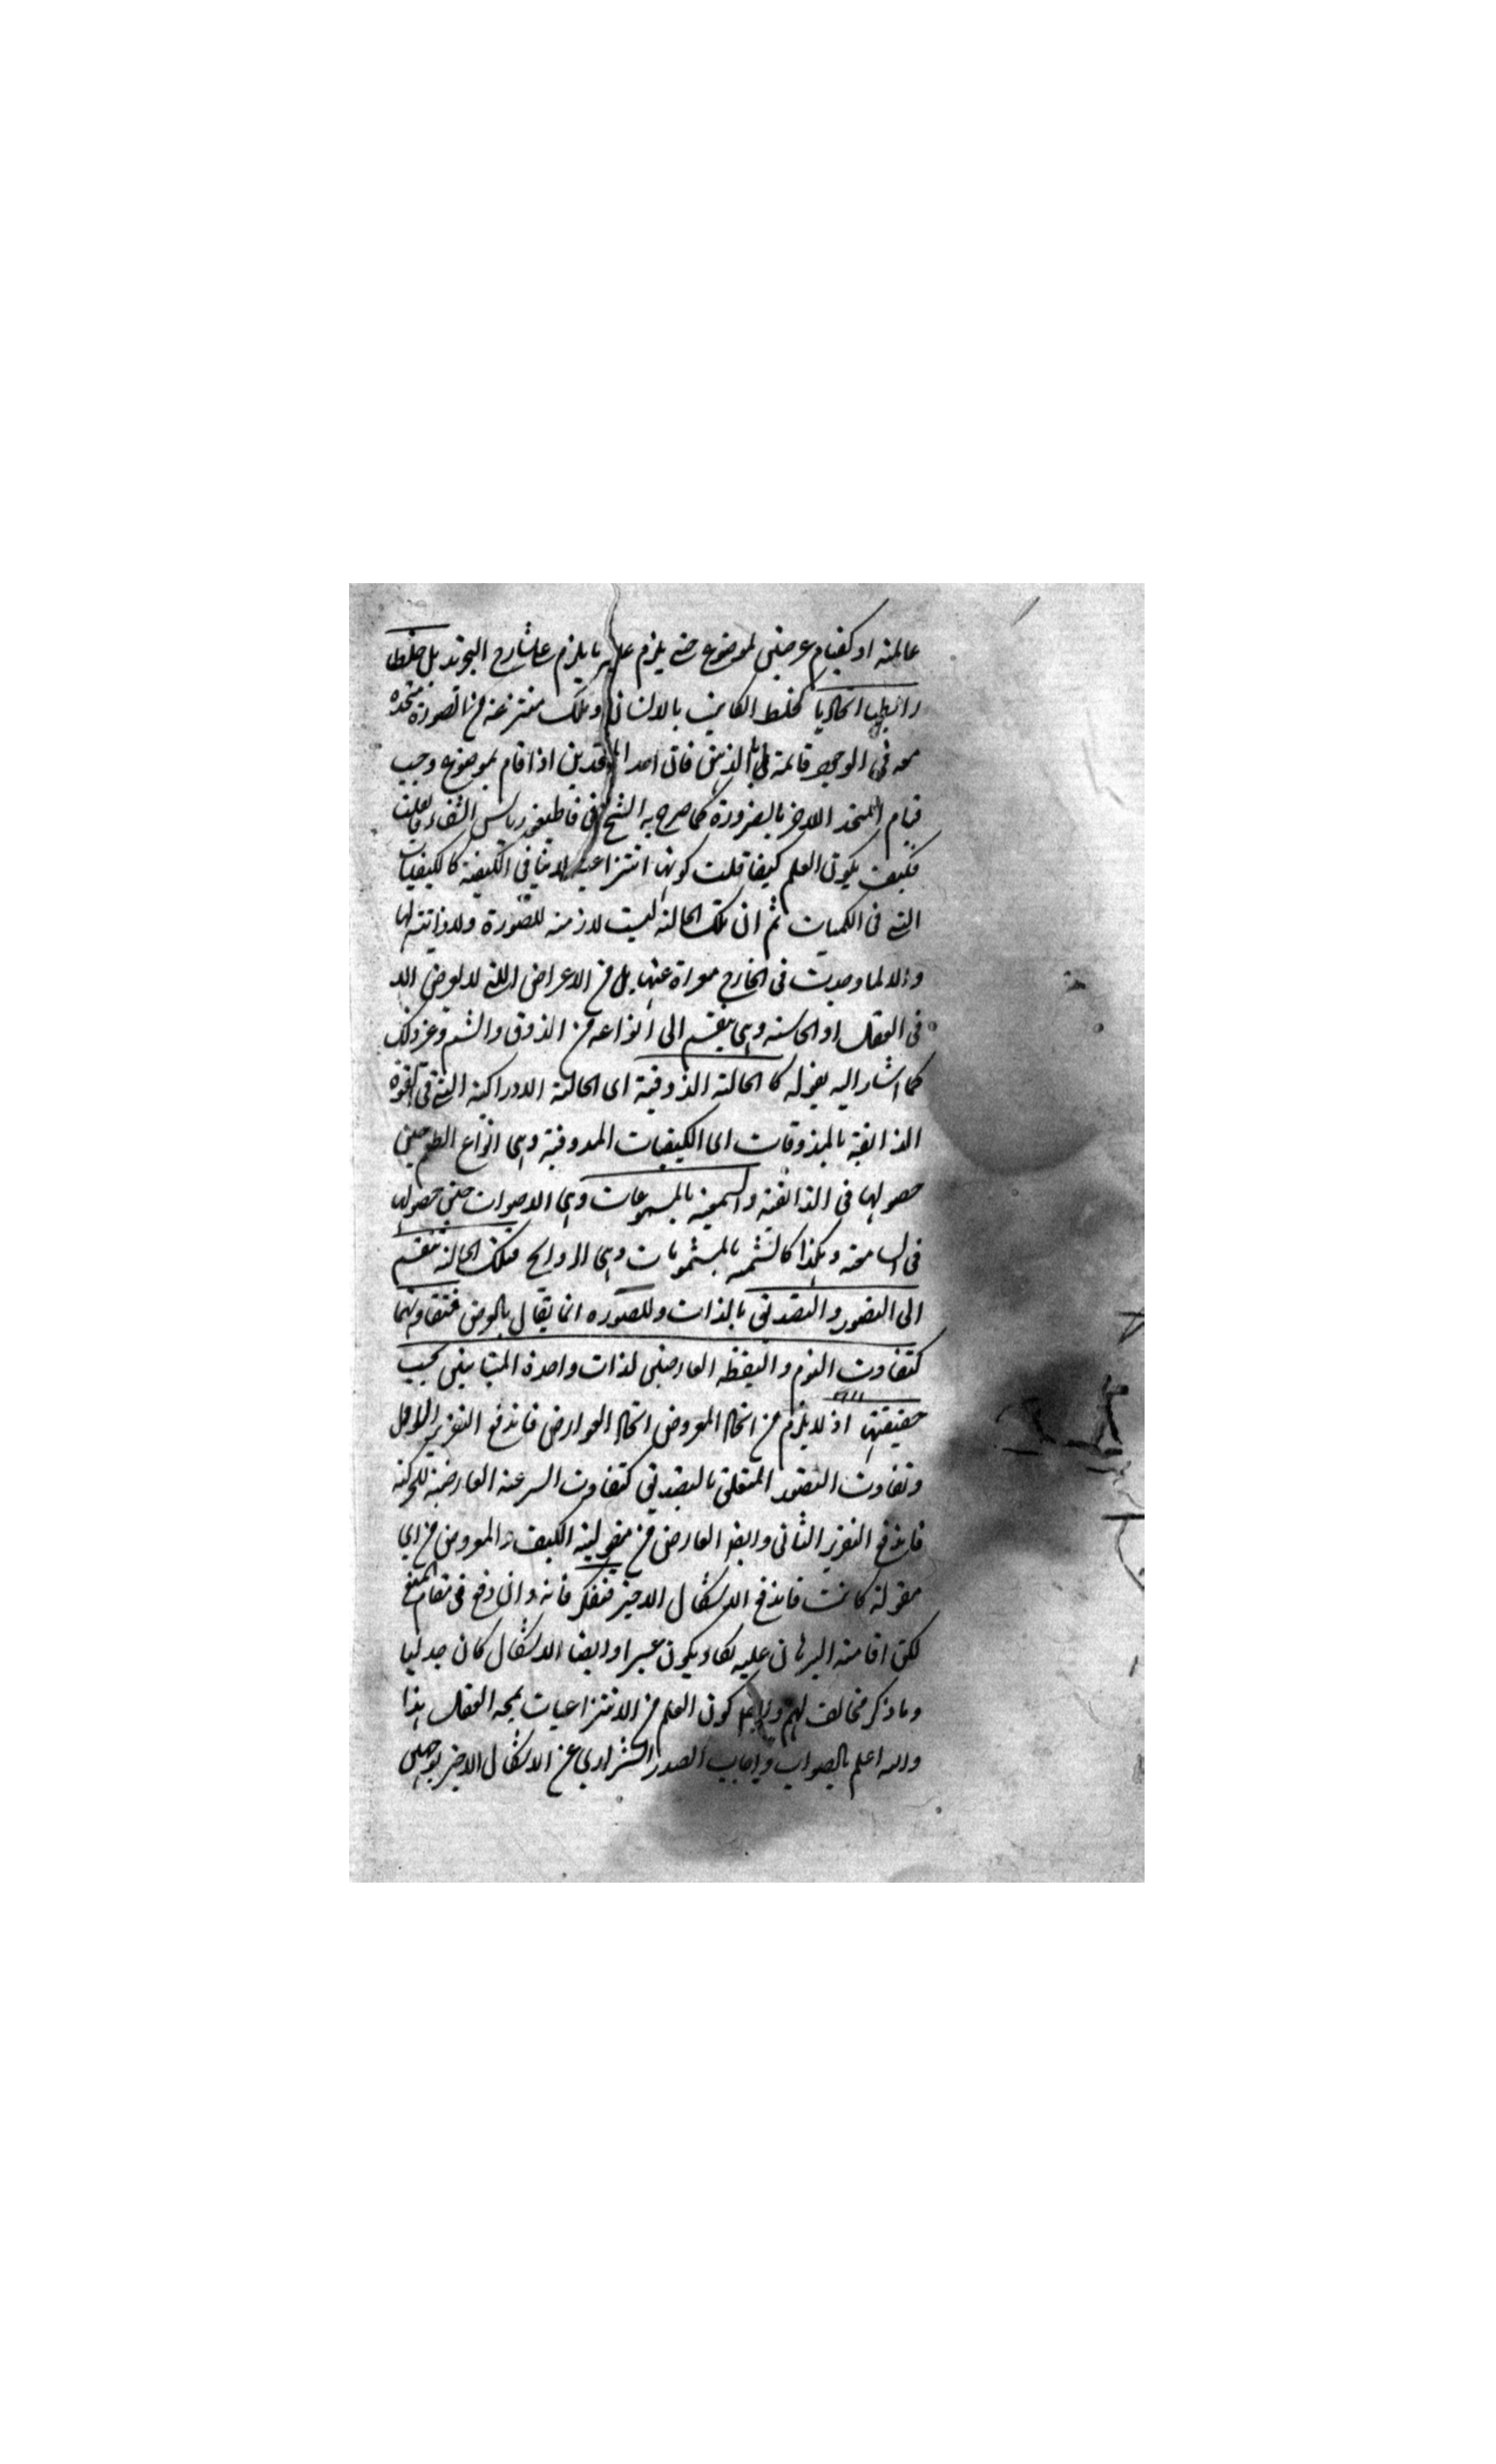 عالمة او كقيام عرضين لموضوع حتى يلزم عليه ما يلزم على شارح التجريد بل خلطا
رابطيا اتحاديا كخلط الكاتب بالانسان وتلك منتزعة من الصورة متحدة
معه في الوجود قائمة بالذهن فان احد المتحدين اذا قام بموضوع وجب
قيام المتحد الاخر بالضرورة كما صرح به الشيخ في قاطيغورياس الشفاء فان قلت
فكيف يكون العلم كيفا قلت كونها انتزاعية لا ينافي الكيفية كالكيفيات
التي في الكميات ثم ان تلك الحالة ليست لازمة للصورة ولا ذاتية لها
والا لما وجدت في الخارج معراة عنها بل من الاعراض اللتي لا تعرض الا
في العقل او الحاسة وهي ينقسم الى انواعه من الذوق والشم وغير ذلك
كما اشار اليه بقوله كالحالة الذوقية اى الحالة الادراكية التي في القوة
الذائقة بالمذوقات اى الكيفيات المذوقية وهي انواع الطعم حين
حصولها في الذائقة والسمعية بالمسموعات وهي الاصوات حين حصولها
في السامعة وهكذا كالشمية بالمشمومات وهي الروايح فتلك الحالة تنقسم
الى التصور والتصديق بالذات وللصورة انما يقال بالعرض فتفاوتهما
كتفاوت النوم واليقظة العارضين لذات واحدة المتباينين بحسب
حقيقتهما اذ لا يلزم من اتحاد المعروض اتحاد العوارض فاندفع التقرير الاول
وتفاوت التصور المتعلق بالتصديق كتفاوت السرعة العارضة للحركة
فاندفع التقرير الثاني وايضا العارض من مقولية الكيف والمعروض من اي
مقولة كانت فاندفع الاشكال الاخير فتفكر فانه وان دفع في مقام المنع
لكن اقامة البرهان عليه يكاد يكون عسيرا وايضا الاشكال كان جدليا
وما ذكر مخالف لهم كون العلم من الانتزاعيات يمجه العقل هذا
والله اعلم بالصواب واجاب الصدر الشيرازي عن الاشكال الاخير بوجهين